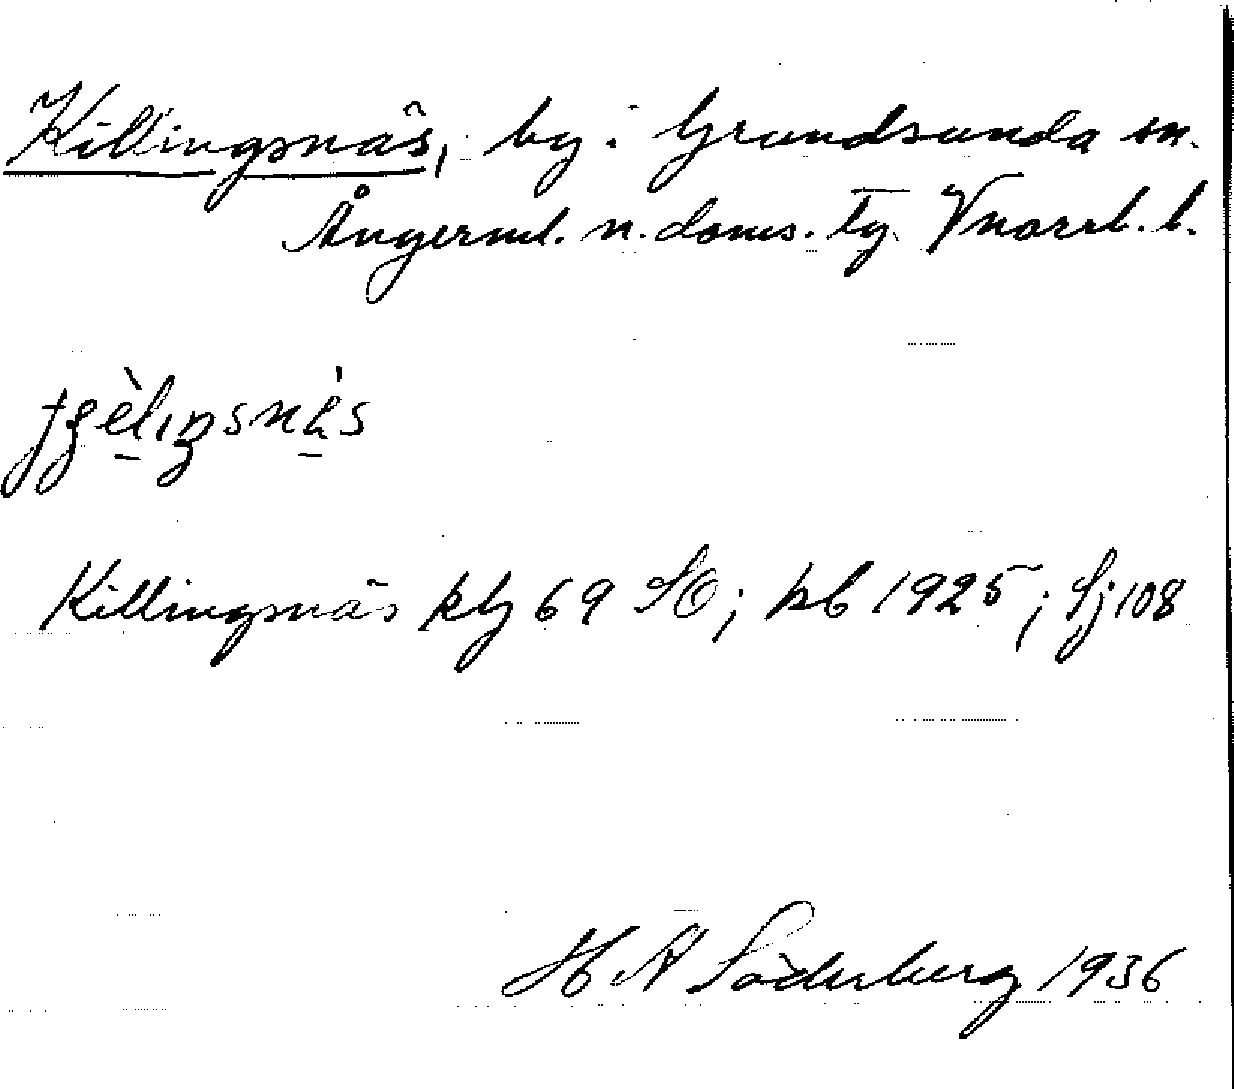 Killingsnäs, by i Grundsunda sn.
Ångerml. n. doms. tg. Vnorrl. l.
Killingsnäs kbg 69 SO; kb 1925; Sj 108
H A Söderberg 1936